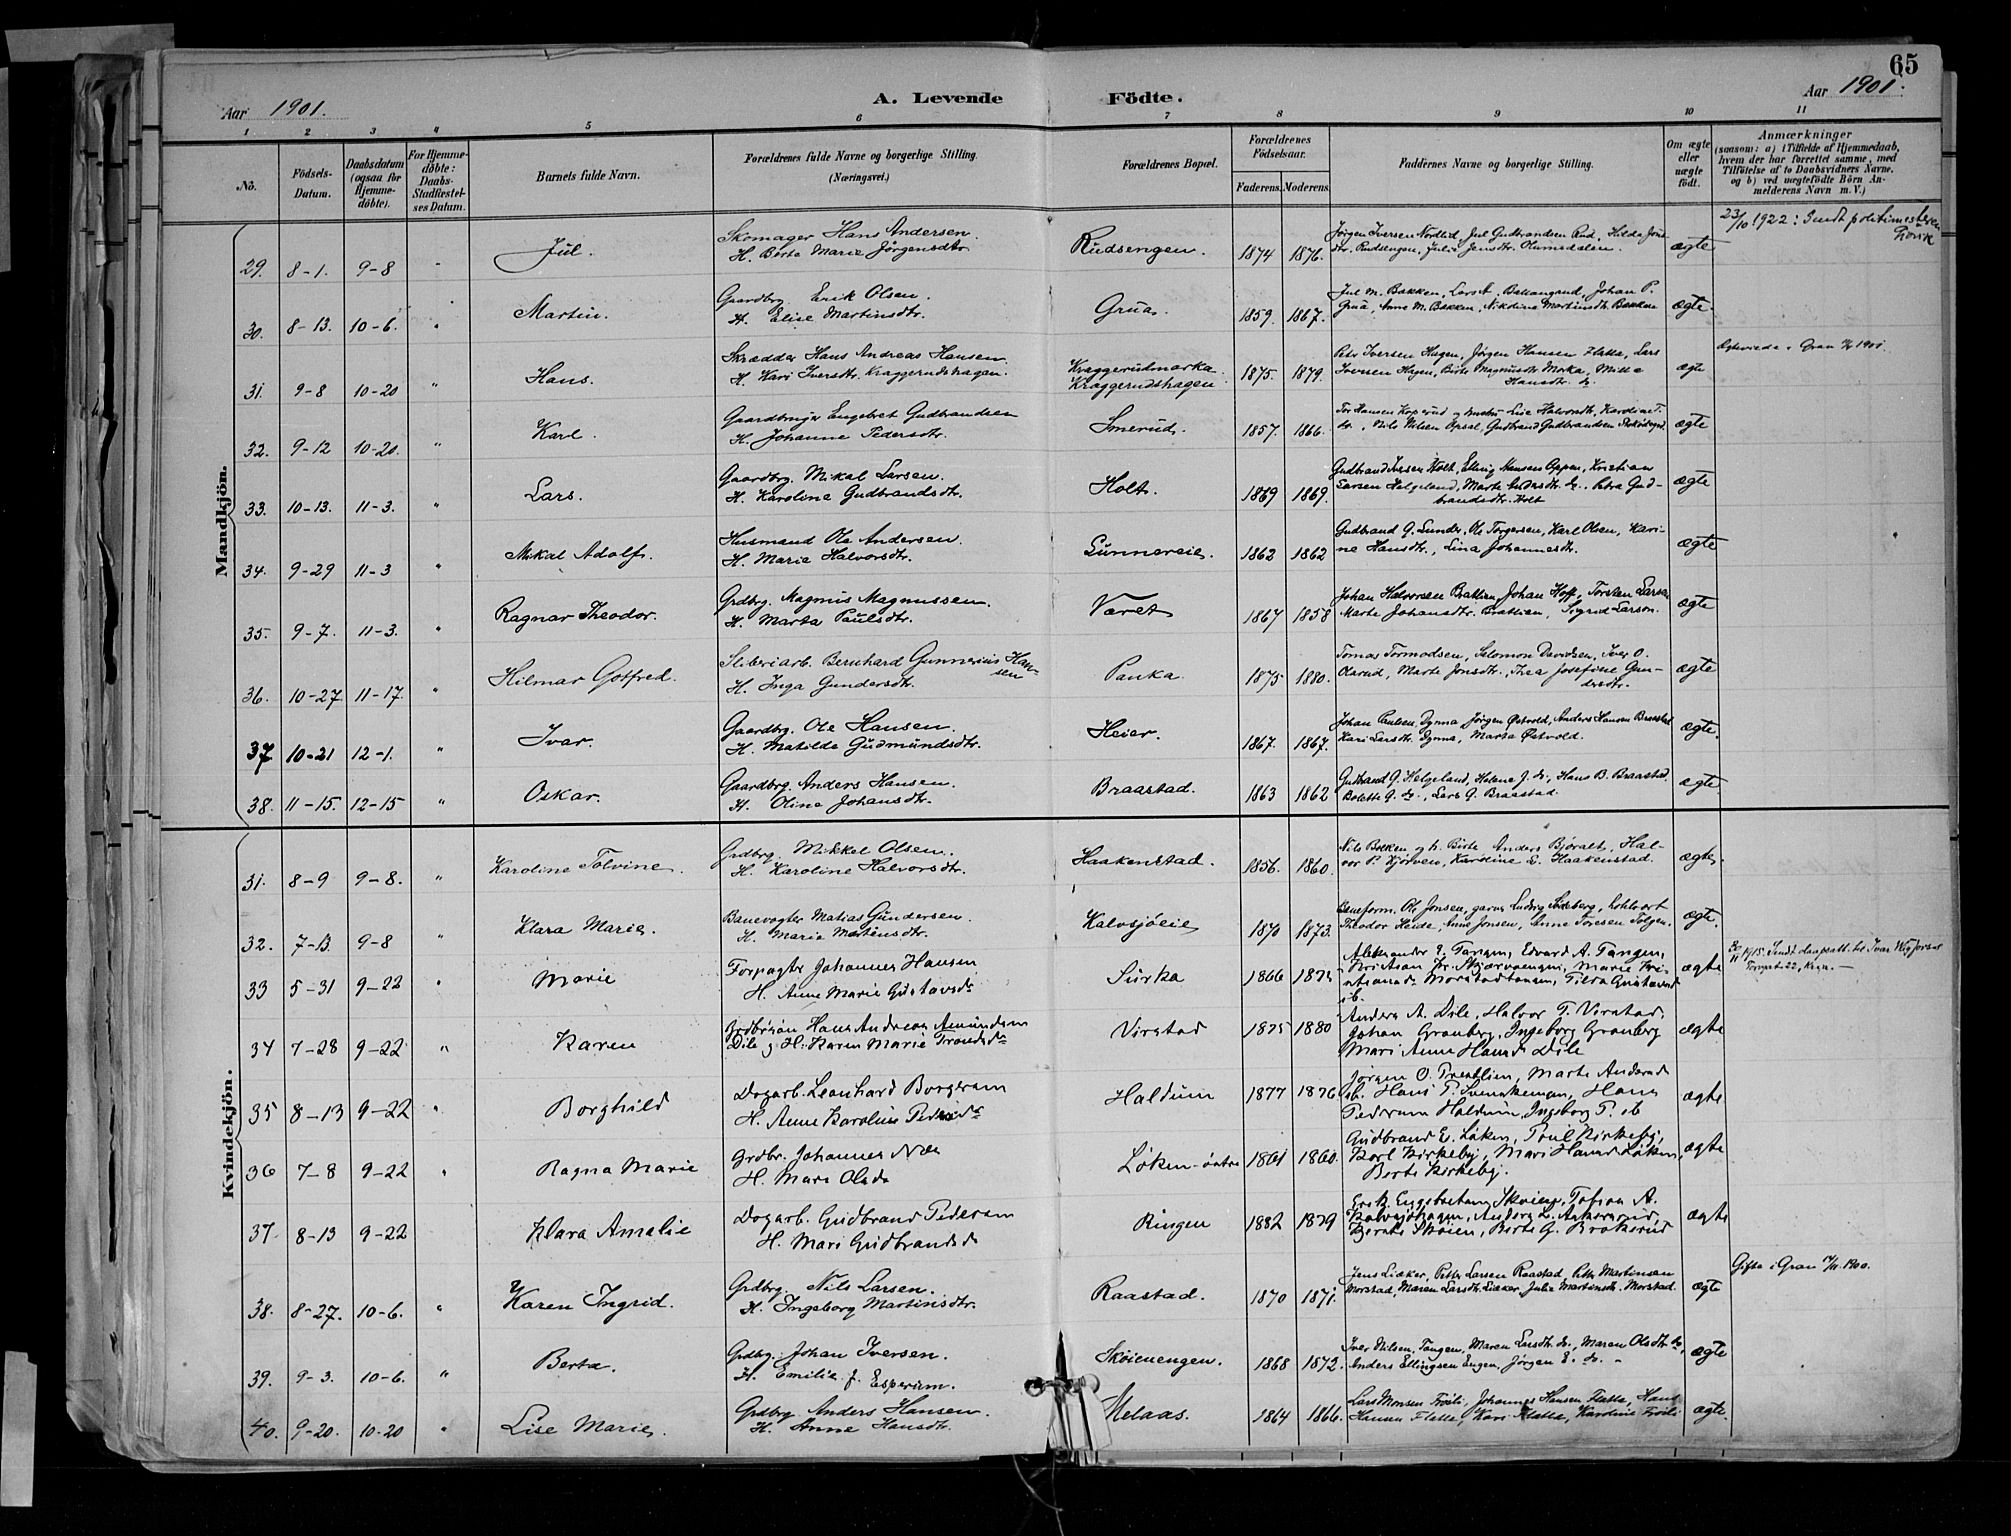 65
Aar 1901. A. Levende Födte. Aar 1901.
1 2 3 4 5 6 7 8 9 10 11
No. Födsels-Datum. Daabsdatum (ogsaa for Hjemme-döbte). For Hjemme-döbte: Daabs-Stadfæstel-ses Datum. Barnets fulde Navn. Forældrenes fulde Navne og borgerlige Stilling. (Næringsvei.) Forældrenes Bopæl. Forældrenes Födselsaar. Faderens. Moderens. Faddernes Navne og borgerlige Stilling. Om ægte eller uægte født. Anmærkninger (saasom: a) i Tilfælde af Hjemmedaab, hvem der har forrettet samme, med Tilföielse af to Daabsvidners Navne, og b) ved uægtefödte Börn An-melderens Navn m. V.)
Mandkjön.
29. 8-1. 9-8 - Jul. Skomager Hans Andersen.
H. Berte Marie Jörgensdtr. Rudsengen. 1874 1876. Jörgen Iversen Nordlid, Jul Gudbrandsen Rud, Hilda Jens
dtr. Rudsengen, Julie Jensdtr. ægte 23/10 1922: Sendt politimesteren
30. 8-13. 10-6. " Martin. Gaardbrg. Erik Olsen.
H. Elise Martinsdtr. Grua. 1859. 1867. Jul M. Bakken, Lars A. Ballangrud, Johan P.
Grua, Anne M. Bakken, Nikoline Martinsdtr. Bakken ægte.
31. 9-8 10-20 " Hans. Skrædder Hans Andreas Hansen.
H. Kari Iversdtr. Kraggerudshagen. Kraggerudmarka.
Kraggerudshagen. 1875. 1879. Peter Iversen Hagen, Jörgen Hansen Flatta, Lars
Iversen Hagen, Birte Magnusdtr Morka, Mitte
Hansdtr. do. ægte Ægteviede i Gran 1901.
32. 9-12 10-20. " Karl. Gaardbruger Engebret Gudbrandsen
H. Johanne Pedersdtr. Smerud. 1857. 1866. Tor Hansen Koperud og hustru Lise Halvorsdtr, Karoline T.
do., Nils Nilsen Opsal, Gudbrand Gudbrandsen ægte
33. 10-13. 11-3. " Lars. Gaardbr. Mikal Larsen.
H. Karoline Gudbrandsdtr. Holt. 1869 1869. Gudbrand Iversen Holt, Elling Hansen Oppen, Kristian
Larsen Helgeland, Marte do., Petra Gud-
brandsdtr. Holt ægte
34. 9-29 11-3 " Mikal Adolf. Husmand Ole Andersen.
H. Marie Halvorsdtr. Gunnereie. 1862 1862 Gudbrand G. Lunder, Ole Torgersen, Karl Olsen, Kari-
ne Hansdtr., Lina Johannesdtr. ægte
35. 9-7. 11-3. " Ragnar Theodor. Grdbrg. Magnus Magnussen.
H. Marta Paulsdtr. Været 1867 1858 Johan Halvorsen Brattlien, Johan Hoff, Torsten Larsen
Marte Johansdtr. Brattlien, Sigrid Larson. ægte
36. 10-27. 11-17. " Hilmar Gotfred. Sliberiarb. Bernhard Gunnerius Han-
sen
H. Inga Gundersdtr. Panka. 1875 1880. Tomas Tormodsen, Salomon Davidsen, Iver O.
Olarud, Marte Jonsdtr., Thea Josefine Gun-
dersdtr. ægte
37. 10-21 12-1. " Ivar. Gaardbrg. Ole Hansen.
H. Matilde Gudmundsdtr. Heier. 1867. 1867. Johan Paulsen, Dynna Jörgen Østvold, Anders Hansen Braastad
Kari Larsdtr. Dynna, Marte Østvold. ægte.
38. 11-15. 12-15 " Oskar. Gaardbrg. Anders Hansen.
H. Oline Johansdtr. Braastad. 1863 1862 Gudbrand G. Helgeland, Helene J. do., Hans B. Braastad
Bolette G. do., Lars G. Braastad. ægte
Kvindekjön.
31. 8-9 9-8. " Karoline Tolvine. Grdbrg. Mikkel Olsen.
H. Karoline Halvorsdtr. Haakenstad. 1856. 1860. Nils Bakken og h. Birte Anders Björalt, Hal-
vor P. Kjörven, Karoline E. Haakenstad. ægte.
32. 7-13 9-8 " Klara Marie. Banevogter Matias Gundersen.
H. Marie Martinsdtr. Kalvsjöeie 1870 1873. Baneform. Ole Jonsen, garver Ludvig Söeberg,
Theodor Heide, Anne Jonsen, Anne Toresen Tolgen. ægte.
33 5-31 9-22 " Marie Forpagter Johannes Hansen
H. Anne Marie Gustavsdr Surka 1866 Aleksander E. Tangen, Edvard A. Tangen,
Kristian Skjervaengen, Marie Kri-
Morstadtangen, Tilda Gustavsd
sb. ægte 1915. Sendt daapsatt. til Ivar
34 7-28 9-22 " Karen Hans Andreas Amundsen
Dile g H. Karen Marie Trondsdr Virstad 1875 1880 Anders A. Dile, Halvor T. Virstad,
Johan Granberg, Ingeborg Granberg
Mari Anne Hansd Dile ægte
35 8-13 9-22 " Borghild Dagarb. Leonhard Borgersen
H. Anne Karoline Pedersdr Haldum 1877 1876 Jørgen O. Prestlien, Marte Andersd
sb. Hans P. Svenskemoen, Hans
Pedersen Haldum, Ingeborg P. sb ægte
36 7-8 9-22 " Ragna Marie Grdbr. Johannes
H. Mari Olsdr Løken-östre 1861 1860. Gudbrand E. Løken, Poul Kirkeby,
Karl Kirkeby, Mari Hansd Løken,
Berte Kirkeby. ægte
37. 8-13 9-22 Klara Amalie Dagarb. Gudbrand Pedersen
H. Mari Gudbrandsd Ringen 1882 1879 Erik Engebretsen Skøien, Tosten A.
Kalvsjöhagen, Anders L.
Skøien, Berte G. ægte
38. 8-27. 10-6. " Karen Ingrid. Grdbrg. Nils Larsen.
H. Ingeborg Martinsdtr. Raastad. 1870 1871. Jens Liaker, Petter Larsen Raastad, Peter Martinsen
Morstad, Maren Larsdtr. Liaker, Julie Martinsdtr. Morstad. ægte Gifte i Gran 1900.
39. 9-3. 10-6. " Berta. Grdbrg. Johan Iversen.
H. Emilie f. Esperum. Skøienengen. 1868 1872. Iver Nilsen, Tangen, Maren Larsdtr. do., Maren Olsdtr. do.
Anders Ellingsen Engen, Jörgen E. do. ægte
40. 9-20. 10-20 " Lise Marie. Grdbrg. Anders Hansen.
H. Anne Hansdtr. Melaas. 1864 1866. Lars Monsen Tröili, Johannes Hansen Flatta, Hans
Hansen Flatta, Kari Flatta, Karoline Tröili ægte.